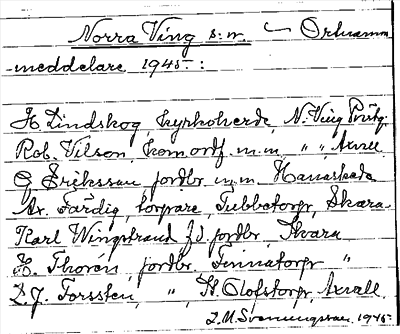 Norra Ving s:n. Ortnamn
meddelare 1945.:
H. Lindskog, kyrkoherde, N. Ving Prästg.
Rob. Vilson, kom.ordf. m.m, " ", Axvall.
G. Eriksson jordbr. m.m Hanaskede
Ax. Färdig, torpare, Tubbetorp, Skara
Karl Wingstrand f.d. jordbr, Skara
H. Thorén, jordbr, Finnatorp "
L.J. Forssten, " , St. Olofstorp, Axvall.
L.M. Svenungsson. 1945.